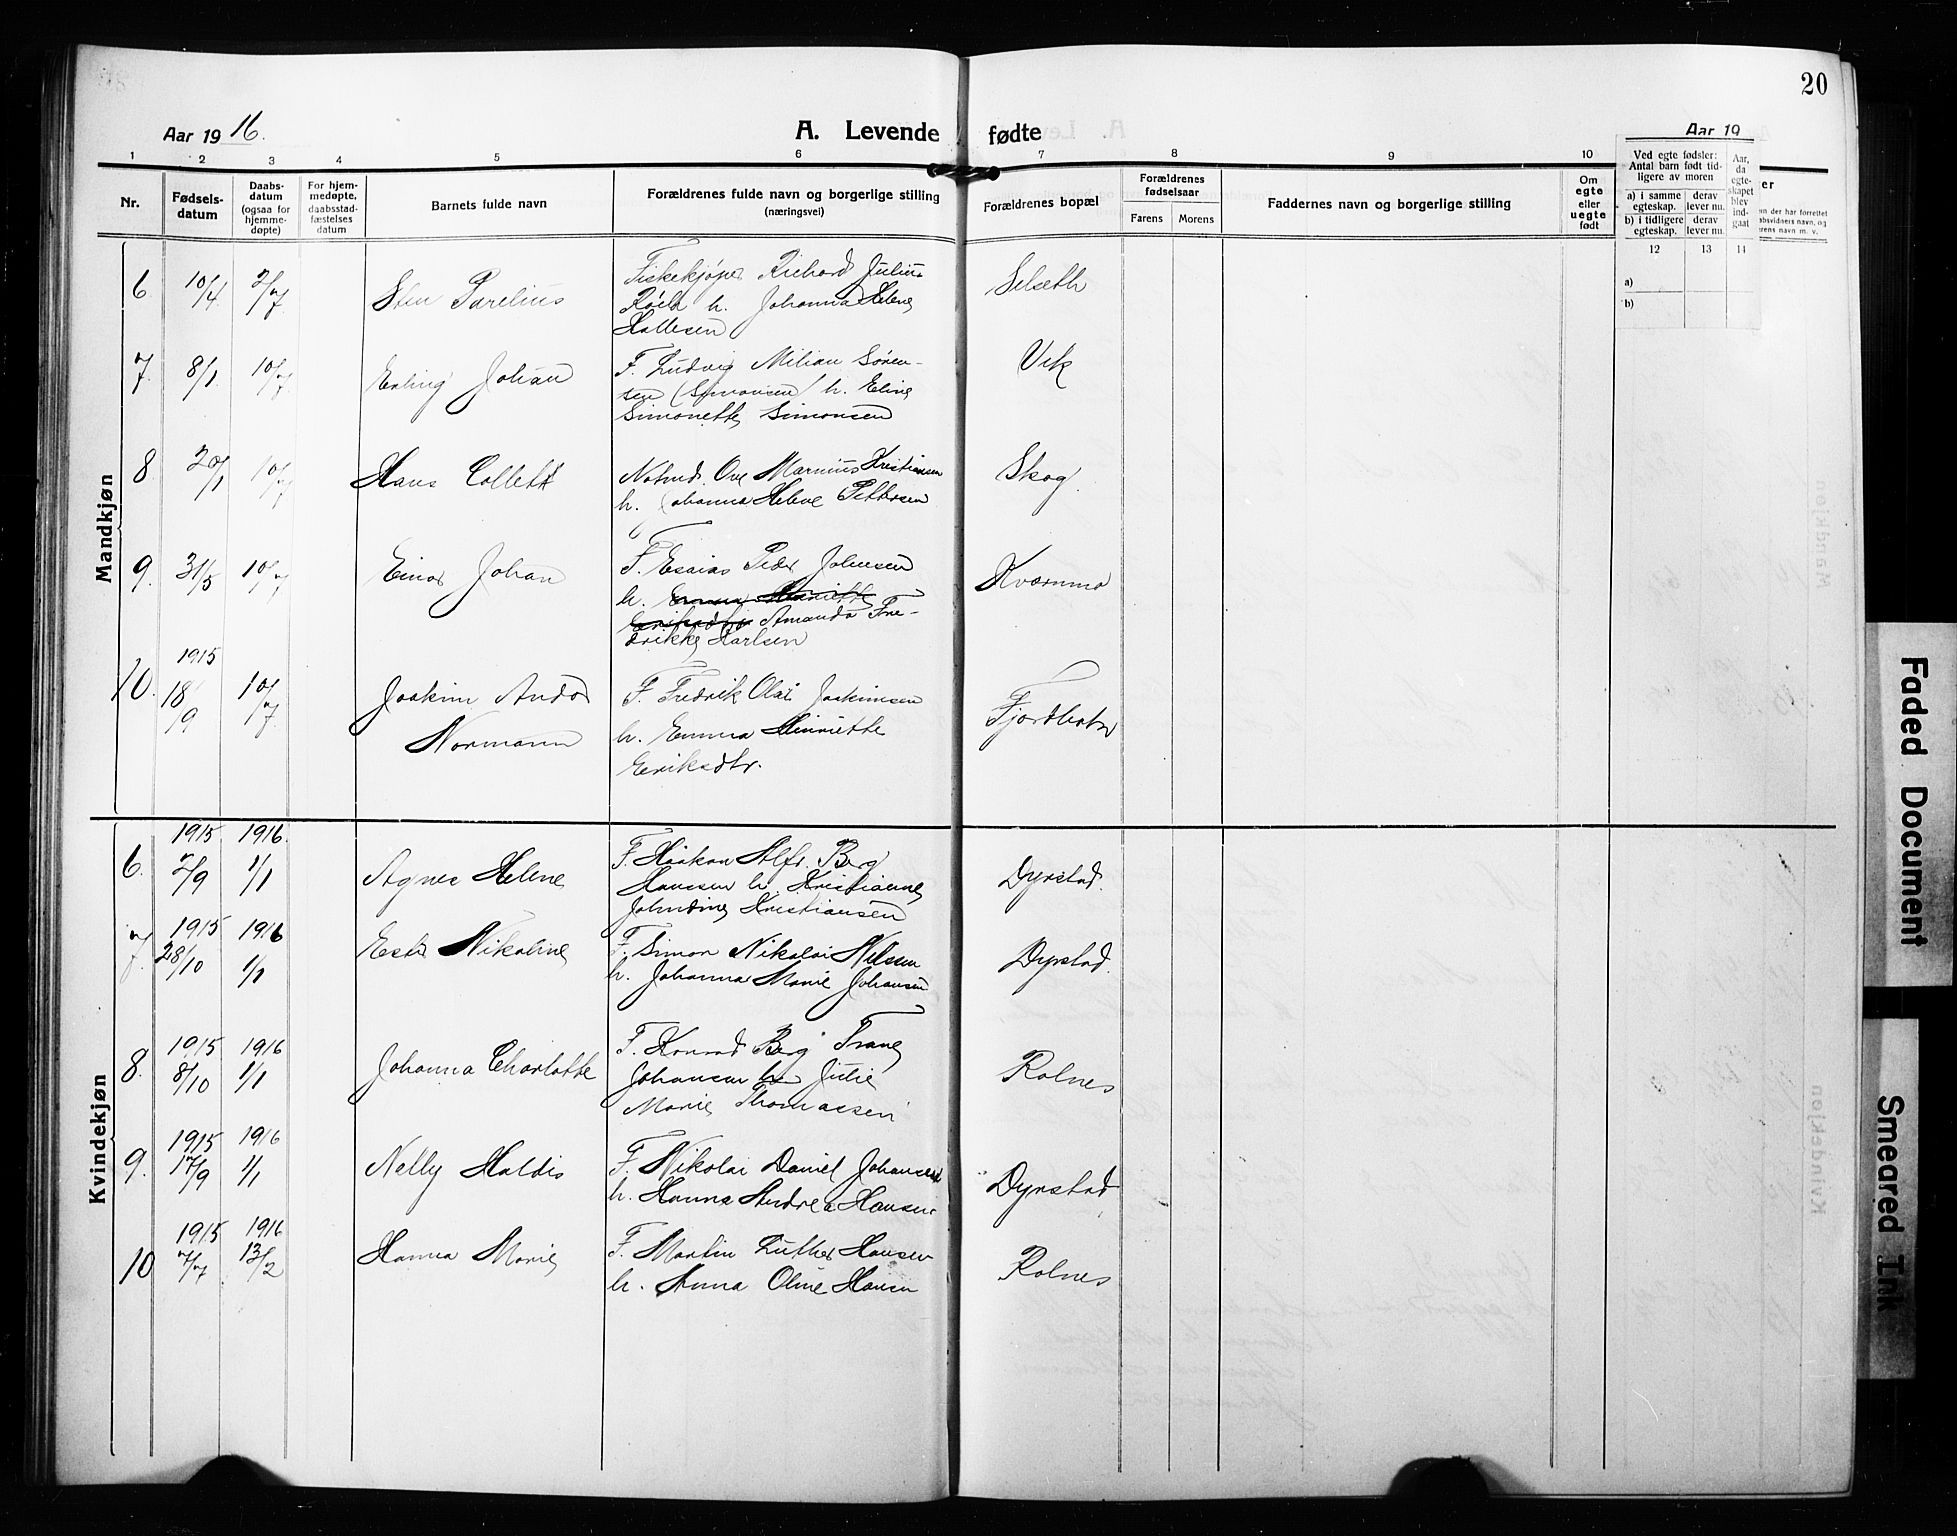 20
Aar 19 16.
A. Levende fødte
Aar 19
1 2 3 4 5 6 7 8 9 10
Nr.
Fødsels-
datum
Daabs-
datum
(ogsaa for
hjemme-
døpte)
For hjem-
medøpte,
daabsstad-
fæstelses
datum
Barnets fulde navn
Forældrenes fulde navn og borgerlige stilling
(næringsvei)
Forældrenes bopæl
Forældrenes
fødselsaar
Farens Morens
Faddernes navn og borgerlige stilling
Om
egte
eller
uegte
født
Ved egte fødsler:
Antal barn født tid-
ligere av moren
a) i samme
egteskap.
derav
lever nu.
b) i tidligere
egteskap.
derav
lever nu.
Aar,
da
egte-
skapet
blev
ind-
gaat
12 13 14
a)
b)
er
en der har forrettet
absvidners navn, og
erens navn m. v.
Mandkjøn
6 10/4 2/7 Sten Parelius
Fiskekjøper Richard Julius
h. Johanna Helene
Hallesen
Selseth
7. 8/1 10/7 Erling Johan
F. Ludvig Milian Søren-
sen (Simonsen) h. Eline
Simonette Simonsen
Vik
8 20/1 10/7 Hans Collett
Notmd. Ove Marnius Kristiansen
h. Johanna Helene Pettersen
Skog
9. 31/5 10/7 Einar Johan
F. Esaias Peder Johnsen
h. Emma Henriette
Eriksdtr Amanda Fre-
drikke Karlsen
Kværnmo
10. 1915 18/9 10/7 Joakim Andor
Normann
F. Fredrik Olai Joakimsen
h. Emma Henriette
Eriksdtr.
Fjordbotn
Kvindekjøn
6. 1915 2/9 1916 1/1 Agnes Helene
F. Haakon Alfr. Berg
Hanssen h. Kristianne
Johndine Kristiansen
Dyrstad.
7. 1915 28/10 1916 1/1 Ester Nikoline
F. Simon Nikolai Nilssen
h. Johanna Marie Johansen
Dyrstad.
8. 1915 8/10 1916 1/1 Johanna Charlotte
F. Konrad Berg Trane
Johansen h. Julie
Marie Thomassen
Rolnes
9. 1915 17/9 1916 1/1 Nelly Haldis
F. Nikolai Daniel Johansen
h. Hanna Andrea Hansen
Dyrstad
10 1915 7/7 1916 13/2 Hanna Marie
F. Martin Luther Hansen
h. Anna Oline Hansen
Rolnes
Faded Document
Smeared Ink